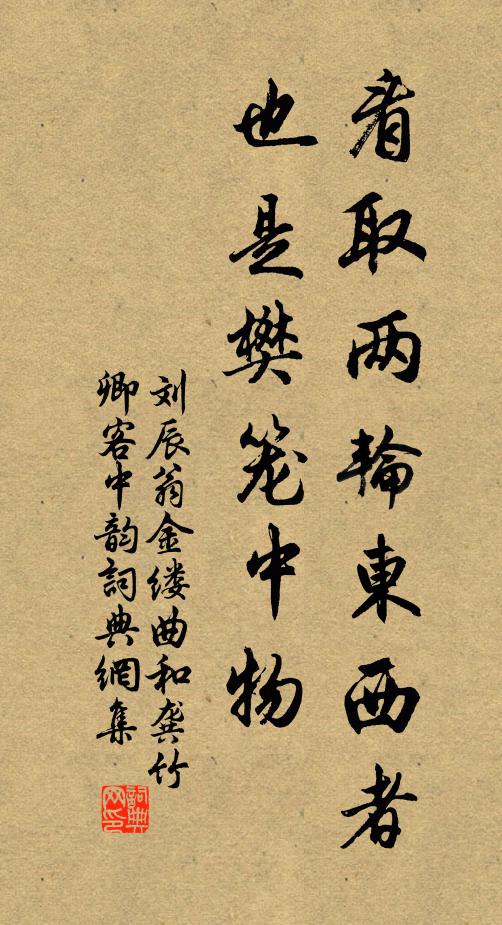 看取两輪東西者
也是樊笼中物
刘辰翁金缕曲和龚竹
卿客中韵詞典網集
詞典網印